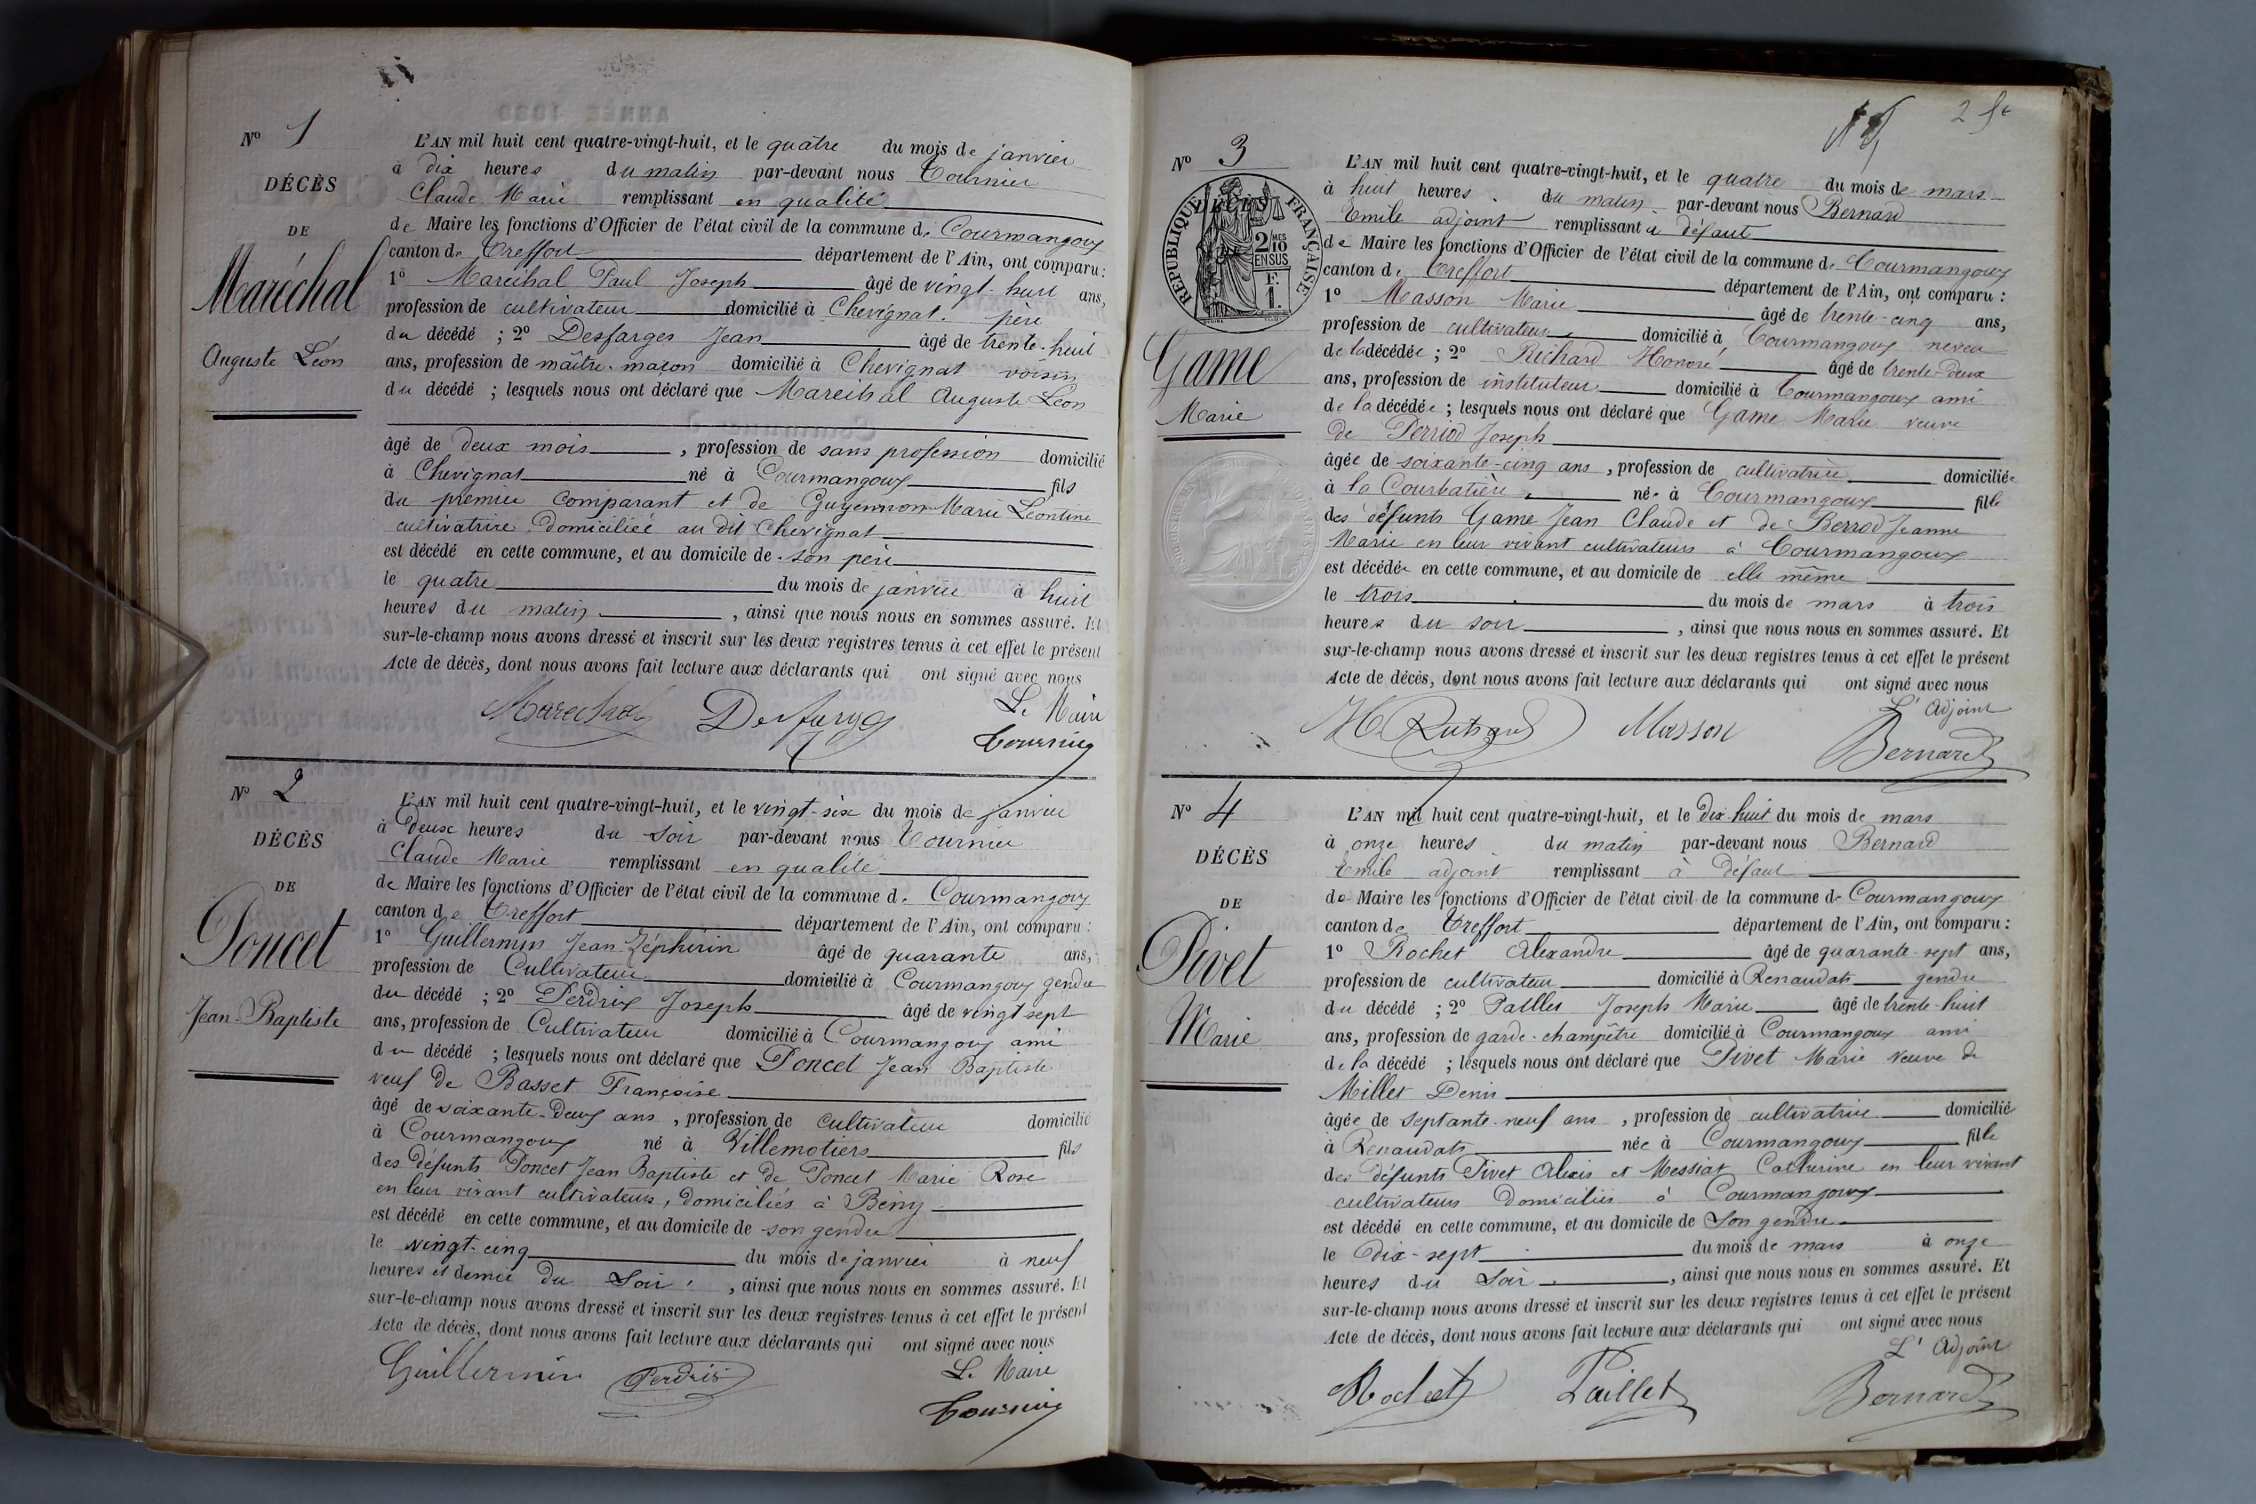 N° 1
DÉCÈS
DE
Maréchal
Auguste Léon
L'AN mil huit cent quatre-vingt-huit, et le quatre du mois de janvier
à dix heures du matin par-devant nous Tournier
Claude Marie remplissant en qualité
de Maire les fonctions d'Officier de l'état civil de la commune de Courmangoux
canton de Treffort département de l'Ain, ont comparu :
1° Maréchal Paul Joseph âgé de vingt-huit ans,
profession de cultivateur domicilié à Chevignat père
du décédé ; 2° Desfarges Jean âgé de trente-huit
ans, profession de maître-maçon domicilié à Chevignat voisin
du décédé ; lesquels nous ont déclaré que Marechal Auguste Léon
âgé de deux mois , profession de sans profession domicilié
à Chevignat né à Courmangoux fils
du premier comparant et de Guyennon Marie Léontine
cultivatrice domiciliée au dit Chevignat
est décédé en cette commune, et au domicile de son père
le quatre du mois de janvier à huit
heures du matin , ainsi que nous nous en sommes assuré. Et
sur-le-champ nous avons dressé et inscrit sur les deux registres tenus à cet effet le présent
Acte de décès, dont nous avons fait lecture aux déclarants qui ont signé avec nous
Marechal Desfarges Le Maire
Tournier
N° 2
DÉCÈS
DE
Poncet
Jean-Baptiste
L'AN mil huit cent quatre-vingt-huit, et le vingt-six du mois de janvier
à Deux heures du soir par-devant nous Tournier
Claude Marie remplissant en qualité
de Maire les fonctions d'Officier de l'état civil de la commune de Courmangoux
canton de Treffort département de l'Ain, ont comparu :
1° Guillermin Jean Zéphirin âgé de quarante ans,
profession de Cultivateur domicilié à Courmangoux gendre
du décédé ; 2° Perdrix Joseph âgé de vingt sept
ans, profession de Cultivateur domicilié à Courmangoux ami
du décédé ; lesquels nous ont déclaré que Poncet Jean Baptiste
veuf de Basset Françoise
âgé de soixante-Deux ans , profession de cultivateur domicilié
à Courmangoux né à Villemotiers fils
des défunts Poncet Jean Baptiste et de Poncet Marie Rose
en leur vivant cultivateurs, domiciliés à Bény
est décédé en cette commune, et au domicile de son gendre
le vingt-cinq du mois de janvier à neuf
heures et demie du Soir , ainsi que nous nous en sommes assuré. Et
sur-le-champ nous avons dressé et inscrit sur les deux registres tenus à cet effet le présent
Acte de décès, dont nous avons fait lecture aux déclarants qui ont signé avec nous
Guillermin Perdrix Le Maire
Tournier
2
N° 3
DÉCÈS
RÉPUBLIQUE FRANÇAISE
2/10 MES
EN SUS
F.
1.
Game
Marie
L'AN mil huit cent quatre-vingt-huit, et le quatre du mois de mars
à huit heures du matin par-devant nous Bernard
Emile adjoint remplissant à défaut
de Maire les fonctions d'Officier de l'état civil de la commune de Courmangoux
canton de Treffort département de l'Ain, ont comparu :
1° Masson Marie âgé de trente-cinq ans,
profession de cultivateur domicilié à Courmangoux neveu
de la décédée ; 2° Richard Honoré âgé de trente-deux
ans, profession de instituteur domicilié à Courmangoux ami
de la décédée ; lesquels nous ont déclaré que Game Marie veuve
de Perriod Joseph
âgée de soixante-cinq ans , profession de cultivatrice domiciliée
à la Courbatière née à Courmangoux fille
des défunts Game Jean Claude et de Berrod Jeanne
Marie en leur vivant cultivateurs à Courmangoux
est décédée en cette commune, et au domicile de elle même
le trois du mois de mars à trois
heures du soir , ainsi que nous nous en sommes assuré. Et
sur-le-champ nous avons dressé et inscrit sur les deux registres tenus à cet effet le présent
Acte de décès, dont nous avons fait lecture aux déclarants qui ont signé avec nous
H. Richard Masson L'Adjoint
Bernard
N° 4
DÉCÈS
DE
Pivet
Marie
L'AN mil huit cent quatre-vingt-huit, et le Dix-huit du mois de mars
à onze heures du matin par-devant nous Bernard
Emile adjoint remplissant à défaut
de Maire les fonctions d'Officier de l'état civil de la commune de Courmangoux
canton de Treffort département de l'Ain, ont comparu :
1° Rochet Alexandre âgé de quarante-sept ans,
profession de cultivateur domicilié à Renaudats gendre
du décédé ; 2° Paillet Joseph Marie âgé de trente-huit
ans, profession de garde-champêtre domicilié à Courmangoux ami
de la décédé ; lesquels nous ont déclaré que Pivet Marie veuve de
Millet Denis
âgée de septante-neuf ans , profession de cultivatrice domicilié
à Renaudats née à Courmangoux fille
des défunts Pivet Alexis et Messiat Catherine en leur vivant
cultivateurs domiciliés à Courmangoux
est décédé en cette commune, et au domicile de Son gendre
le Dix-sept du mois de mars à onze
heures du Soir , ainsi que nous nous en sommes assuré. Et
sur-le-champ nous avons dressé et inscrit sur les deux registres tenus à cet effet le présent
Acte de décès, dont nous avons fait lecture aux déclarants qui ont signé avec nous
Rochet Paillet L'Adjoint
Bernard